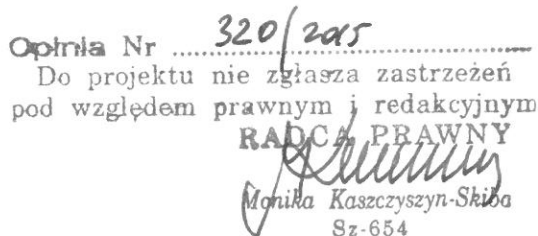 Opinia Nr 320/2015
Do projektu nie zgłasza zastrzeżeń
pod względem prawnym i redakcyjnym
RADCA PRAWNY
Monika Kaszczyszyn-Skiba
Sz-654